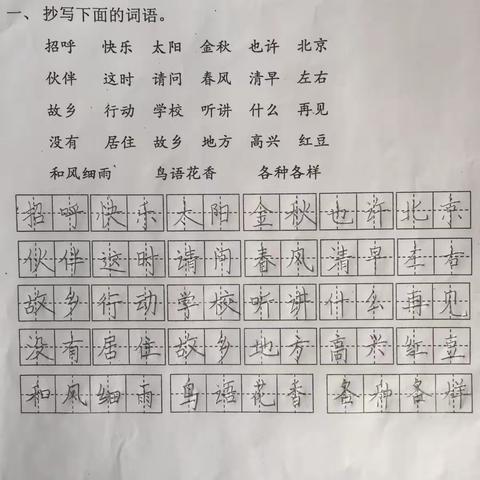 一、抄写下面的词语。
招呼 快乐 太阳 金秋 也许 北京
伙伴 这时 请问 春风 清早 左右
故乡 行动 学校 听讲 什么 再见
没有 居住 故乡 地方 高兴 红豆
和风细雨 鸟语花香 各种各样
招呼 快乐 太阳 金秋 也许 北京
伙伴 这时 请问 春风 清早 左右
故乡 行动 学校 听讲 什么 再见
没有 居住 故乡 地方 高兴 红豆
和风细雨 鸟语花香 各种各样